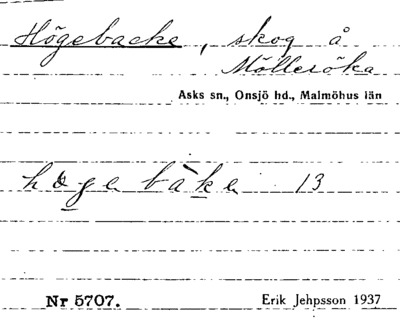 Högebacke, skog å
Möllesöka
Asks sn., Onsjö hd., Malmöhus län
høge bàke 13
Nr 5707.
Erik Jehpsson 1937